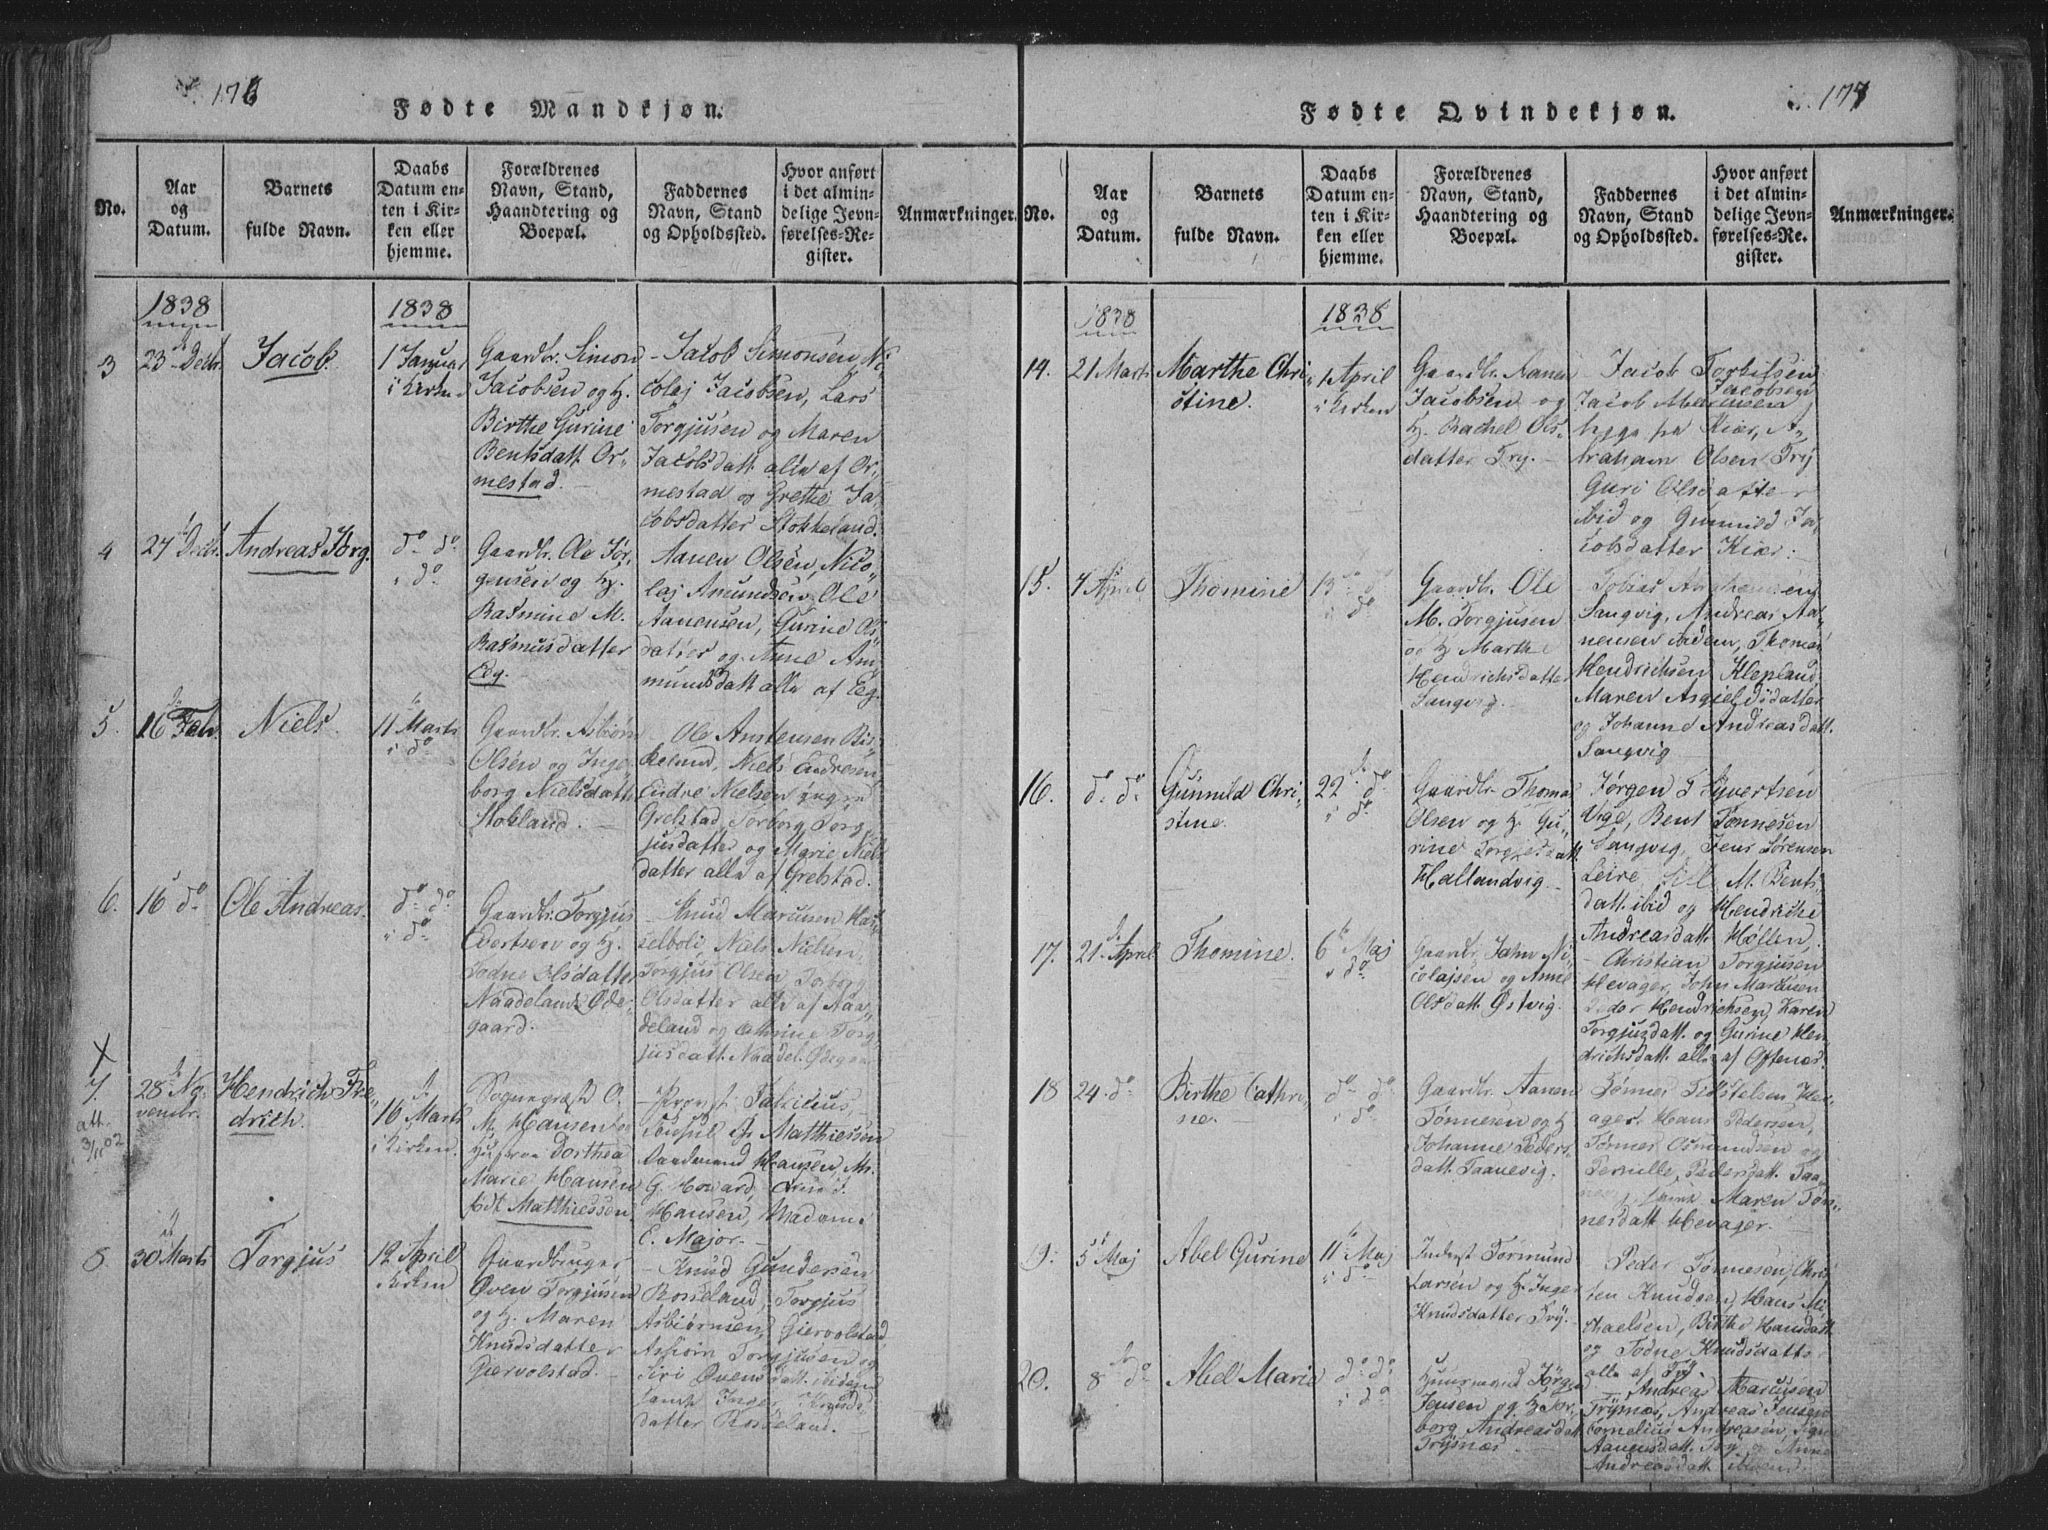 176
Fødte Mandkjøn.
No.
Aar
og
Datum.
Barnets
fulde Navn.
Daabs
Datum en-
ten i Kir-
ken eller
hjemme.
Forældrenes
Navn, Stand,
Haandtering og
Boepæl.
Faddernes
Navn, Stand
og Opholdssted.
Hvor anført
i det almin-
delige Jevn-
førelses-Re-
gister.
Anmærkninger.
1838
1838
3
23 Decbr.
Jacob
1 Januar
i Kirken
Gaardbr. Simon
Jacobsen og H.
Birthe Gurine
Bentsdatt. Or-
mestad.
Jacob Simonsen, Ni-
colaj Jacobsen, Lars
Torgjusen og Maren
Jacobsdatt. alle af Or-
mestad og Grethe Ja-
cobsdatter Stokkeland.
4
27 Decbr.
Andreas Jørg.
do do
i do
Gaardbr. Ole Jør-
gensen og H.
Rasmine M.
Rasmusdatter
Eeg.
Aanen Olsen, Nico-
laj Amundsen, Ole
Aanensen, Gurine Ols-
datter og Anne Am-
mundsdatt. alle af Eeg.
5.
16 Febr.
Niels
11 Marts
i do
Gaardbr. Asbiørn
Olsen og Inge-
borg Nielsdatt.
Stokland.
Ole Anstensen Bir-
keland, Niels Endresen
Endre Nielsen
Grelstad, Torborg Torg-
jusdatter og Marie Niels-
datter alle af Grelstad.
6.
16 do
Ole Andreas
do do
i do
Gaardbr. Torgjus
Evertsen og H.
Todne Olsdatter
Naadelands Øde-
gaard.
Knud Marcusen
Niels Nielsen,
Torgjus Olsen, Torborg
Olsdatter alle af Naa-
deland og Cathrine Torg-
jusdatt. Naadel. Ødegaa
7.
att.
3/11 02
28 No-
vembr.
Hendrich Fre-
drich.
16 Marts
i Kirken.
Sognepræst O.
M. Hansen og
Hustrue Dorthea
Marie Hansen
født Matthiessen.
Provst Fabricius
Consul Matthiessen
Hansen, Mr.
G. Howard,
Hansen, Madame
E. Major.
8.
30 Marts
Torgjus
12 April
i Kirken
Gaardbruger
Øven Torgjusen
og H. Maren
Knudsdatter
Giervolstad.
Knud Gundersen
Rosseland, Torgjus
Asbiørnsen, Giervolstad
Asbiørn Torgjusen og
Siri Øvensdatt. ibidem
samt Inger Knuds-
datter Rosseland.
177
Fødte Qvindekjøn.
No.
Aar
og
Datum.
Barnets
fulde Navn.
Daabs
Datum en-
ten i Kir-
ken eller
hjemme.
Forældrenes
Navn, Stand,
Haandtering og
Boepæl.
Faddernes
Navn, Stand
og Opholdssted.
Hvor anført
i det almin-
delige Jevn-
førelses-Re-
gister.
Anmærkninger.
1838
1838
14.
21 Marts
Marthe Chri-
stine.
1 April
i Kirken
Gaardbr. Aanen
Jacobsen og
H. Rachel Ols-
datter Try.
Jacob Torbilsen
Jacobsen
Jacob
begge fra Kiær, A-
braham Olsen Try
Guri Olsdatter
ibid og Gunnild Ja-
cobsdatter Kiær.
15.
4 April
Thomine
13 do
i do
Gaardbr. Ole
M. Torgjusen
og H. Marthe
Hendrichsdatter
Sangvig.
Tobias
Sangvig, Andreas Aa-
nensen Thomas
Hendrichsen Klepland
Maren Asgieldsdatter
og Johanne Andreasdatt.
Sangvig
16.
do do
Gunnild Chri-
stine.
22 do
i do
Gaardbr. Thomas
Olsen og H. Gu-
rine Torgiedsdatt.
Hallandvig.
Jørgen T. Syvertsen
Vige, Bent Tønnesen
Sangvig, Jens Sørensen
Leire, M. Bents-
datt. ibid og Hendriche
Andreasdatt. Høllen.
17.
21 April
Thomine.
6 Maj
i do
Gaardbr. John Ni-
colajsen og Anne
Olsdatt. Østvig.
Christian Torgjusen
Hevager, John Marcusen
Peder Hendrichsen, Karen
Torgjusdatt. og Gurine Hen-
drichsdatt. alle af Oftenæs.
18
24 do
Birthe Cathri-
ne.
do do
i do
Gaardbr. Aanen
Tønnesen og H.
Johanne Peders-
datt. Taanevig.
Tønnes Hev-
ager. Hans Pedersen,
Tønnes Osmundsen og
Pernille Pedersdatt. Taa-
ne samt Maren Tøn-
nesdatt. Hevager.
19.
5 Maj
Abel Gurine
11 Maj
i do
Inderst Tormund
Larsen og H. Inger
Knudsdatter Try.
Peder Tønnesen, Chris-
ten Knudsen, Hans Mi-
chaelsen, Birthe Hansdatt.
og Todne Knudsdatter
alle af Try.
20.
8 do
Abel Marie
do do
i do
Huusmand Jørgen
Jensen og H. Tor-
borg Andreasdatt.
Trysnæs.
Andreas Marcusen
Trysnæs, Andreas Jensen
Cornelius Andreasen, Signe
Aanensdatt. Try og Anne
Andreasdatt. ibidem.